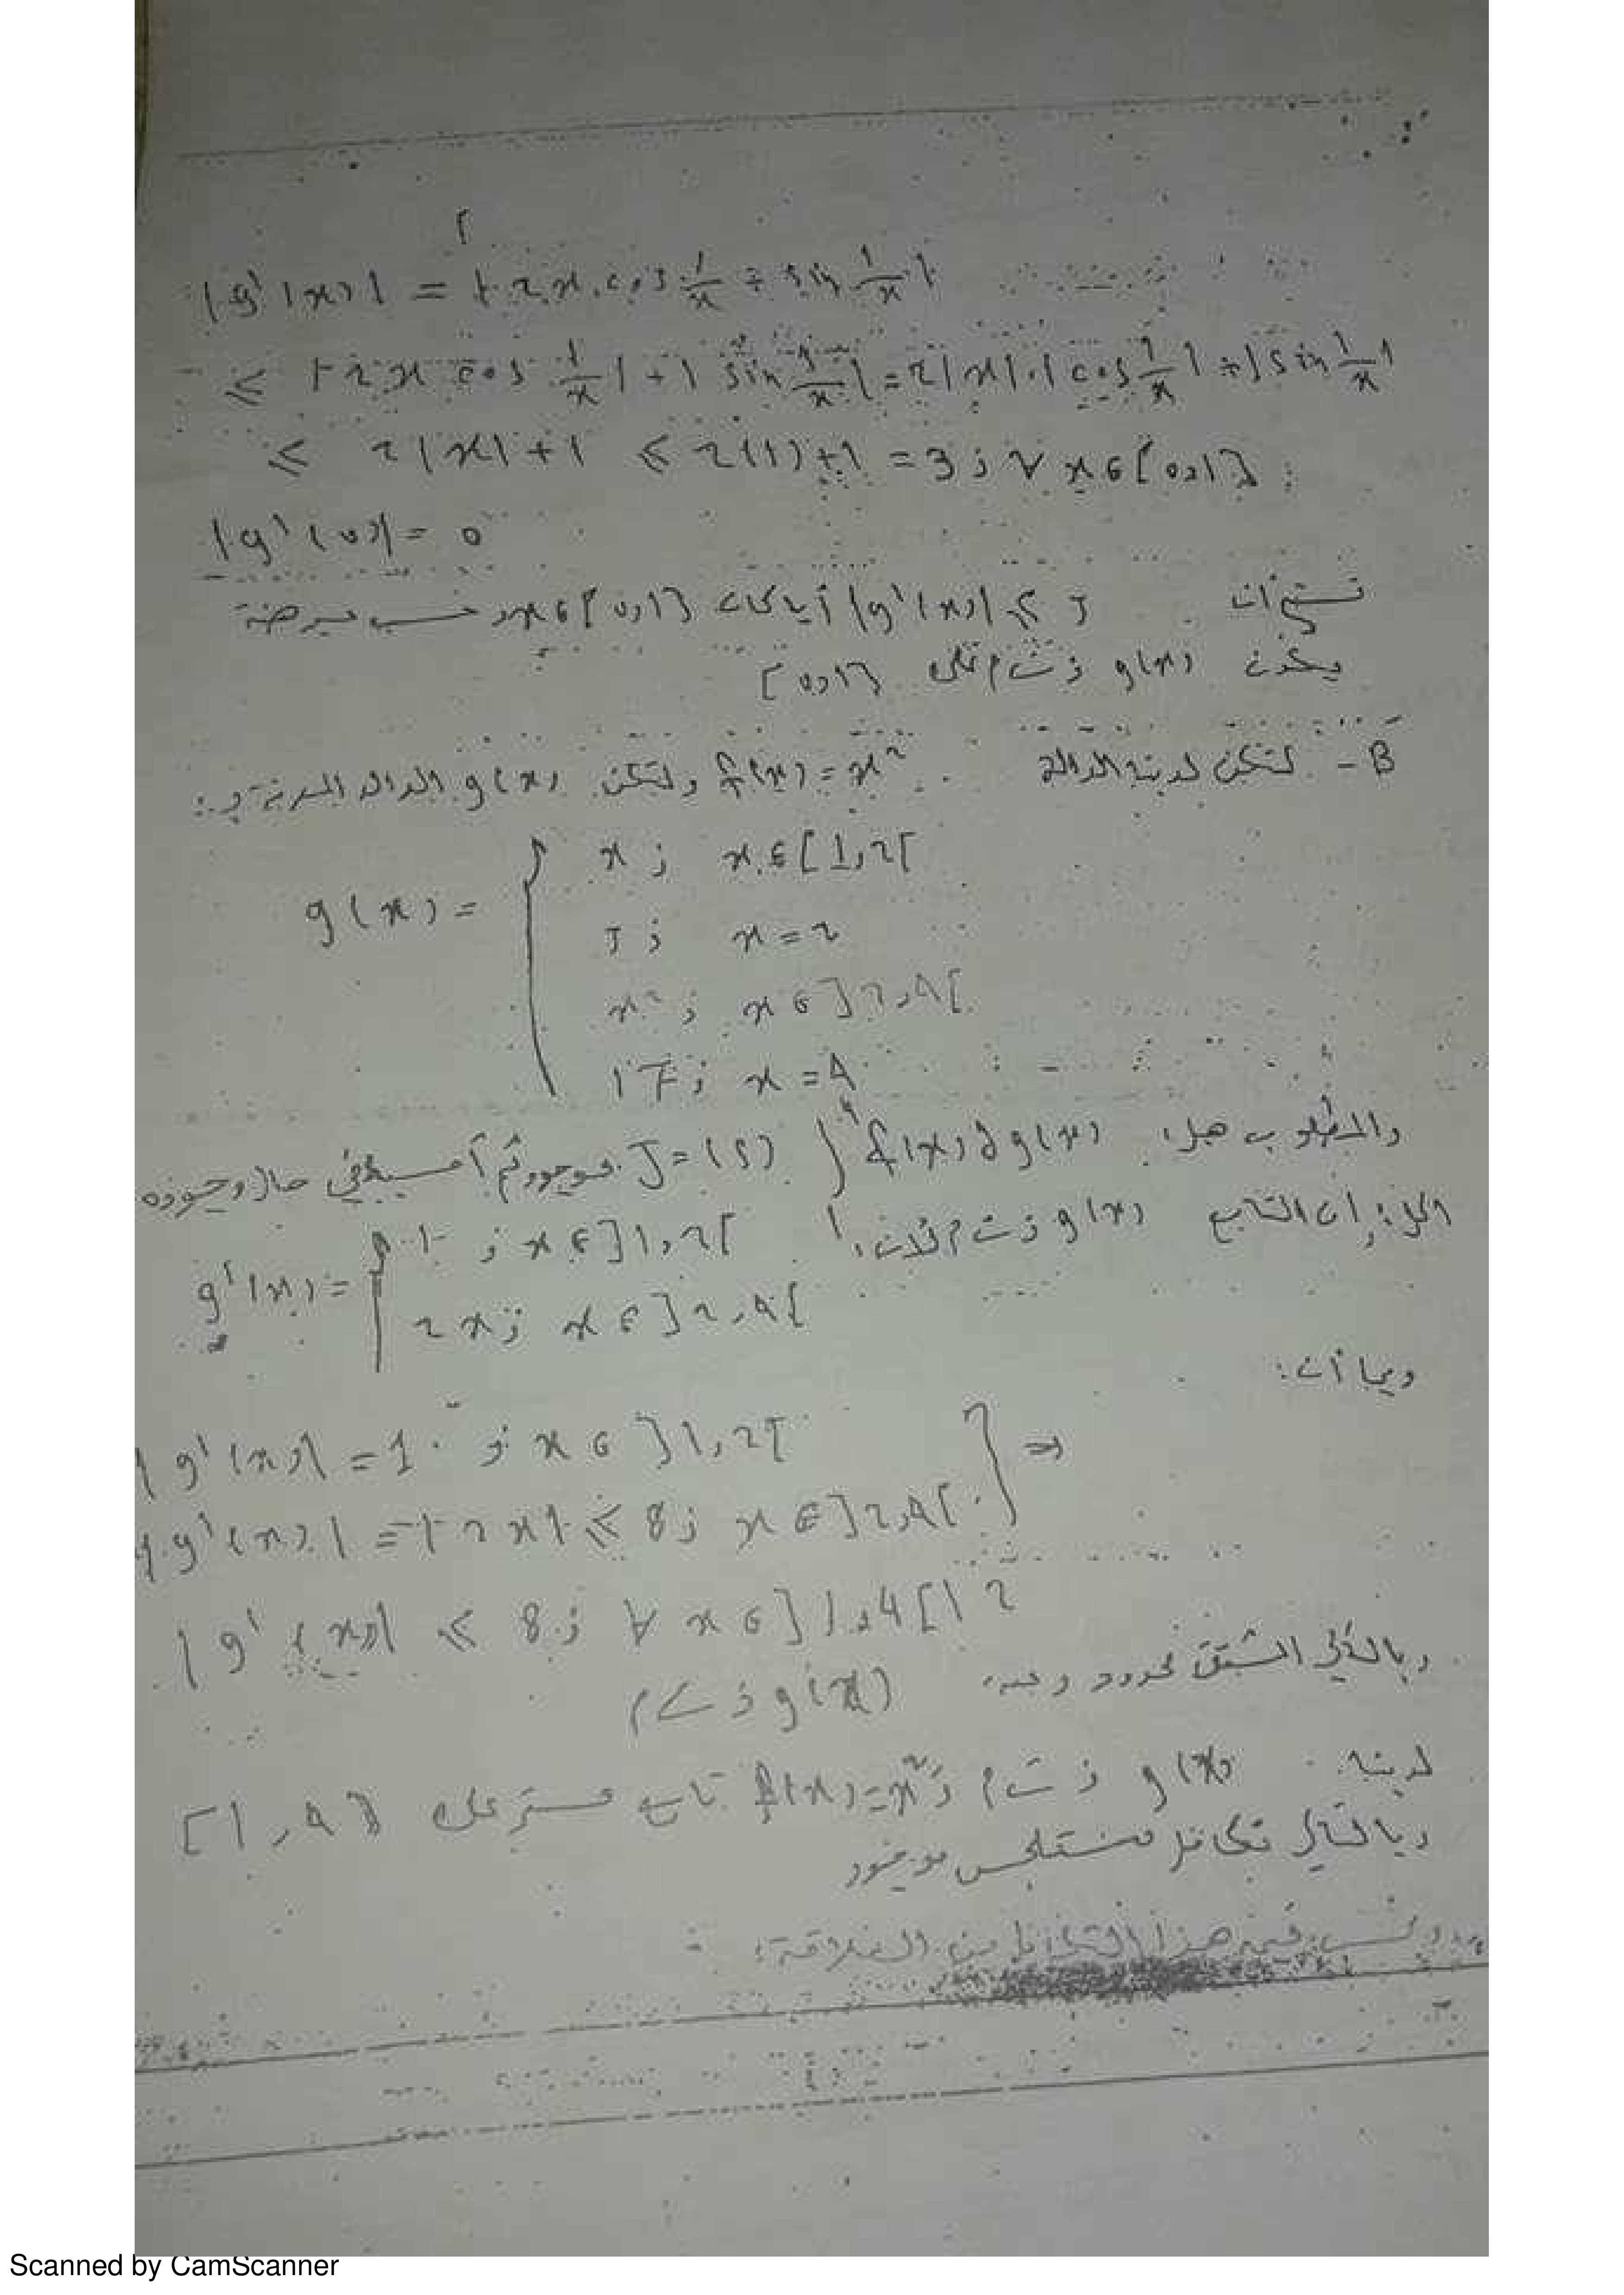 |g'(x)| = |2x.cos 1/x + sin 1/x|
≤ |2x cos 1/x| + |sin 1/x| = 2|x|.|cos 1/x| + |sin 1/x|
≤ 2|x| + 1 ≤ 2(1)+1 = 3 ; ∀ x ∈ [0,1]
|g'(0)| = 0
نستنتج أن |g'(x)| ≤ 3 أياً كان x ∈ [0,1] وحسب مبرهنة
يكون g(x) ذ ت م على [0,1]
B - لتكن لدينا الدالة f(x) = x² ولتكن g(x) الدالة المعرفة بـ :
g(x) = { x ; x ∈ [1,2[
5 ; x = 2
x² ; x ∈ ]2,4[
17 ; x = 4
والمطلوب هل J = (S) ∫₁⁴ f(x) d g(x) موجود ثم أحسبه في حال وجوده
الحل: إن التابع g(x) ذ ت م لأن:
g'(x) = { 1 ; x ∈ ]1,2[
2x ; x ∈ ]2,4[
وبما أن:
|g'(x)| = 1 ; x ∈ ]1,2[
|g'(x)| = |2x| ≤ 8 ; x ∈ ]2,4[ } ⇒
|g'(x)| ≤ 8 ; ∀ x ∈ ]1,4[ \ 2
وبالتالي المشتق محدود ومنه g(x) ذ ت م
لدينا g(x) ذ ت م و f(x) = x² تابع مستمر على [1,4]
وبالتالي تكامل ستيلجس موجود
ونحسب قيمة هذا التكامل من العلاقة:
Scanned by CamScanner